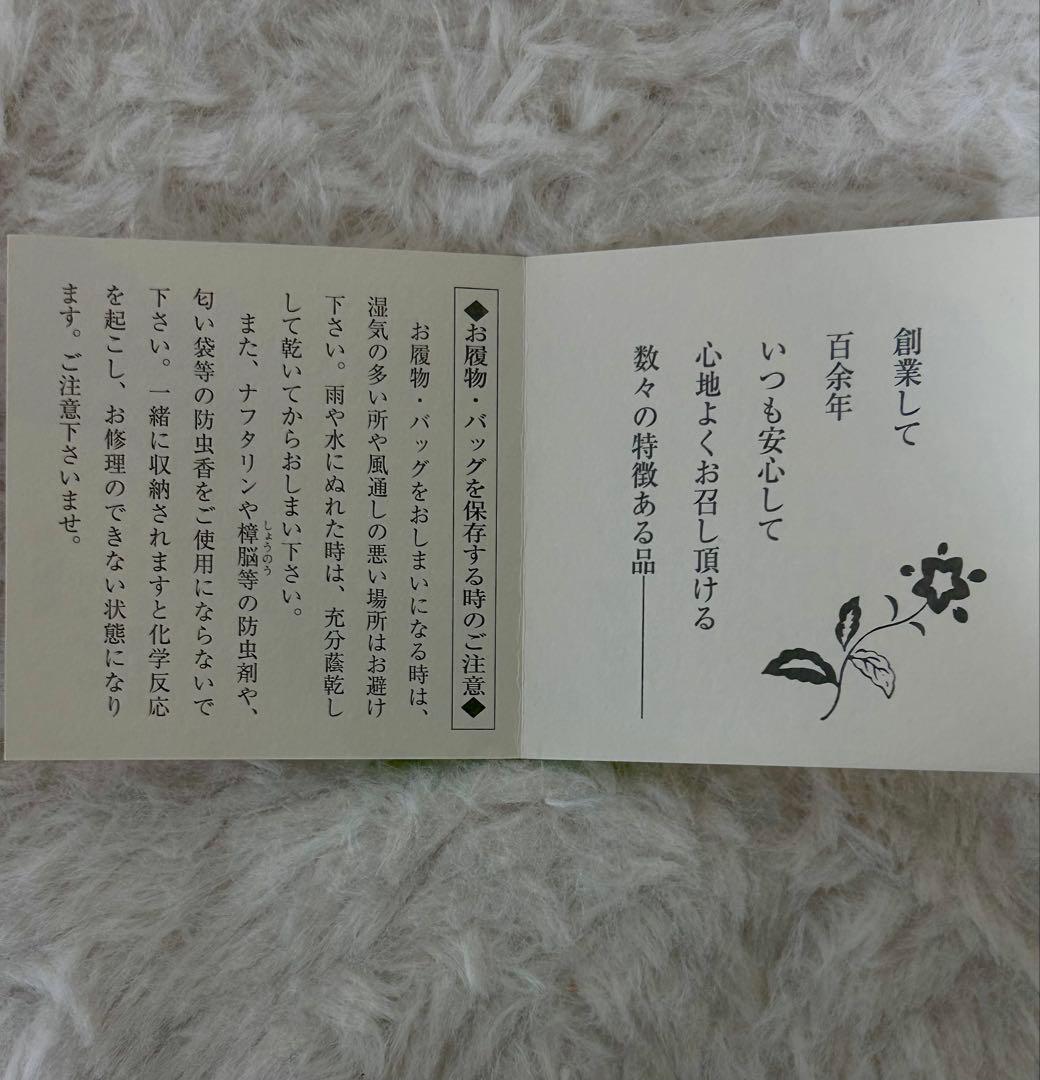 創業して
百余年
いつも安心して
心地よくお召し頂ける
数々の特徴ある品――
◆お履物・バッグを保存する時のご注意◆
お履物・バッグをおしまいになる時は、
湿気の多い所や風通しの悪い場所はお避け
下さい。雨や水にぬれた時は、充分蔭乾し
して乾いてからおしまい下さい。
また、ナフタリンや樟脳等の防虫剤や、
しょうのう
匂い袋等の防虫香をご使用にならないで
下さい。一緒に収納されますと化学反応
を起こし、お修理のできない状態になり
ます。ご注意下さいませ。